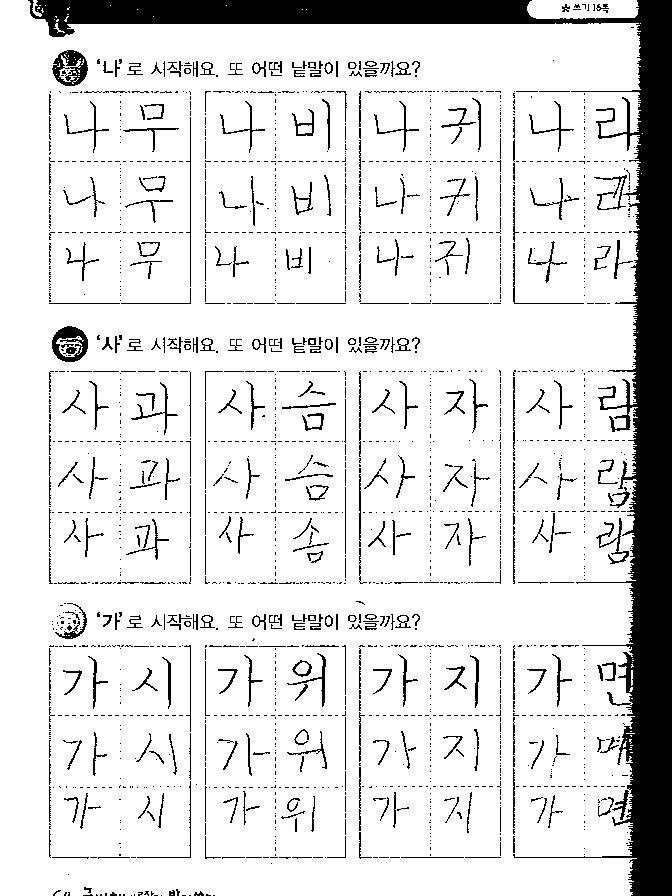 ☆ 쓰기 16쪽
'나'로 시작해요. 또 어떤 낱말이 있을까요?
나무 나비 나귀 나라
나무 나비 나귀 나라
나무 나비 나귀 나라
'사'로 시작해요. 또 어떤 낱말이 있을까요?
사과 사슴 사자 사람
사과 사슴 사자 사람
사과 사솜 사자 사람
'가'로 시작해요. 또 어떤 낱말이 있을까요?
가시 가위 가지 가면
가시 가위 가지 가면
가시 가위 가지 가면